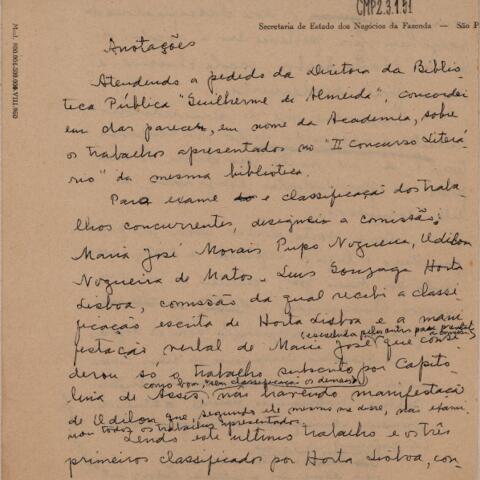 CMP2.3.1.51
Secretaria de Estado dos Negócios da Fazenda — São P
Mod.
Anotações
Atendendo a pedido da Diretora da Biblio-
teca Pública "Guilherme de Almeida", concordei
em dar parecer, em nome da Academia, sobre
os trabalhos apresentados no "II Concurso Literá-
rio" da mesma biblioteca.
Para exame e classificação dos traba-
lhos concurrentes, designei a comissão:
Maria José Morais Pupo Nogueira, Udilon
Nogueira de Matos e Luís Gonzaga Horta
Lisboa, comissão da qual recebi a classi-
ficação escrita de Horta Lisboa e a mani-
(escolhida pelos outros para presidir
a comissão)
festação verbal de Maria José que consi-
derou só o trabalho subscrito por Capito-
como bom, sem classificação os demais,
lina de Assis, não havendo manifestação
de Udilon que, segundo ele mesmo me disse, não exami-
nou todos os trabalhos apresentados.
Lendo este último trabalho e os três
primeiros classificados por Horta Lisboa, con-